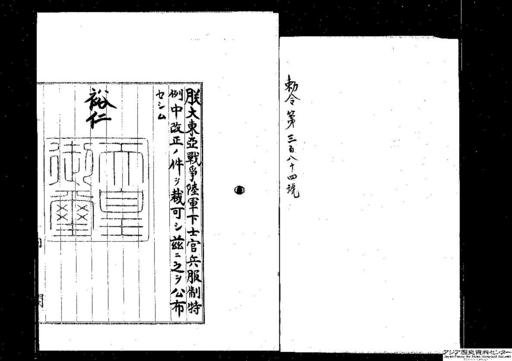 勅令第三百八十四號
朕大東亞戰爭陸軍下士官兵服制特
例中改正ノ件ヲ裁可シ茲ニ之ヲ公布
セシム
裕仁
天皇
御璽
アジア歴史資料センター